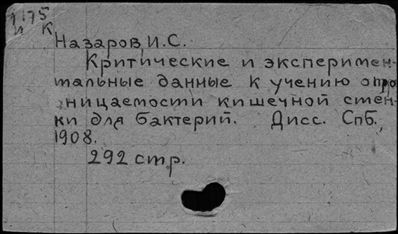 1175
и К
Назаров, И.С.
Критические и эксперимен-
тальные данные к учению о про
ницаемости кишечной стен-
ки для бактерий. Дисс. Спб.,
1908.
292 стр.